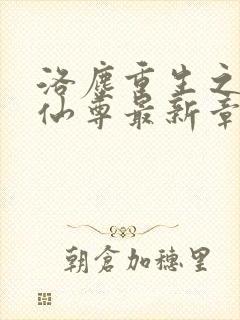 洛尘重生之
仙尊最新章
朝倉加穗里